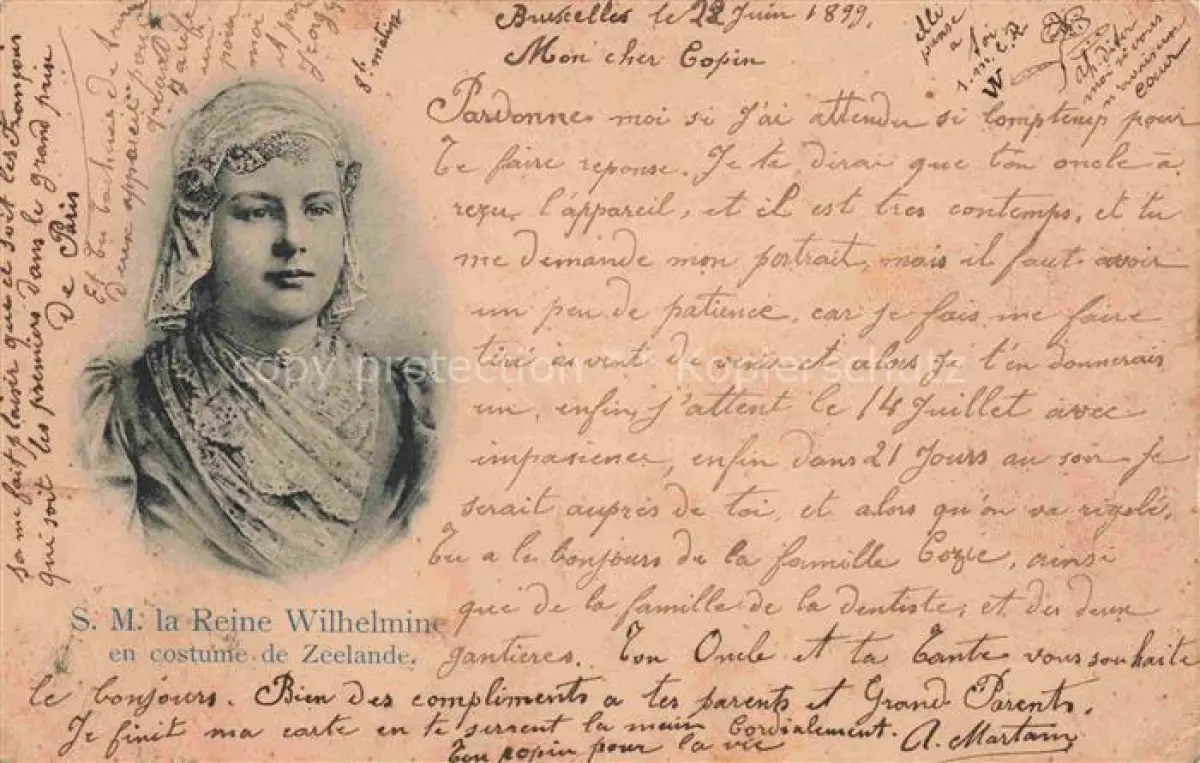 Bruxelles le 22 Juin 1899.
Mon cher Copin
Pardonne moi si J'ai attendu si lomptemp pour
te faire reponse. Je te dirai que ton oncle à
rezu l'áppareil, et il est tres contemps, et tu
me demande mon portrait, mais il faut avoir
un peu de patience, car je fais me faire
tiré avent de venir et alors Je t'en donnerais
un, enfin, j'attent le 14 Juillet avec
impasience, enfin dans 21 Jours au soir Je
serait auprès de toi, et alors qu'on va rigolé.
Tu a le bonjours de la famille Cozic, ainsi
que de la famille de la dentiste, et des deux
gantieres. Ton Oncle et ta Tante vous souhaite
le bonjours. Bien des compliments a tes parents et Grand Parents.
Je finit ma carte en te serrent la main Cordialement. A. Martain
Ton copin pour la vie
S. M. la Reine Wilhelmine
en costume de Zeelande.
sa me fait plaisir que ce soit les Français
qui soit les premiers dans le grand prix
de Paris
Et tu
deux
moi
8h matin
a toi
W
moi si vous
coeur
copy protection - Kopierschutz